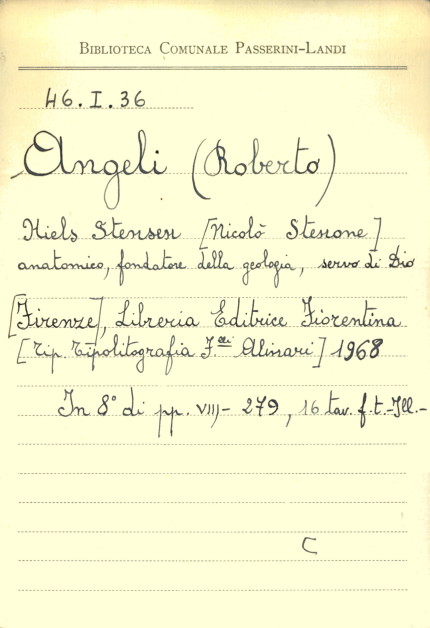 BIBLIOTECA COMUNALE PASSERINI-LANDI
46.I.36
Angeli (Roberto)
Niels Stensen [Nicolò Stenone]
anatomico, fondatore della geologia, servo di Dio
[Firenze], Libreria Editrice Fiorentina
[Tip. Tipolitografia F.lli Alinari] 1968
In 8° di pp. VIII - 279, 16 tav. f.t.-Ill.-
C